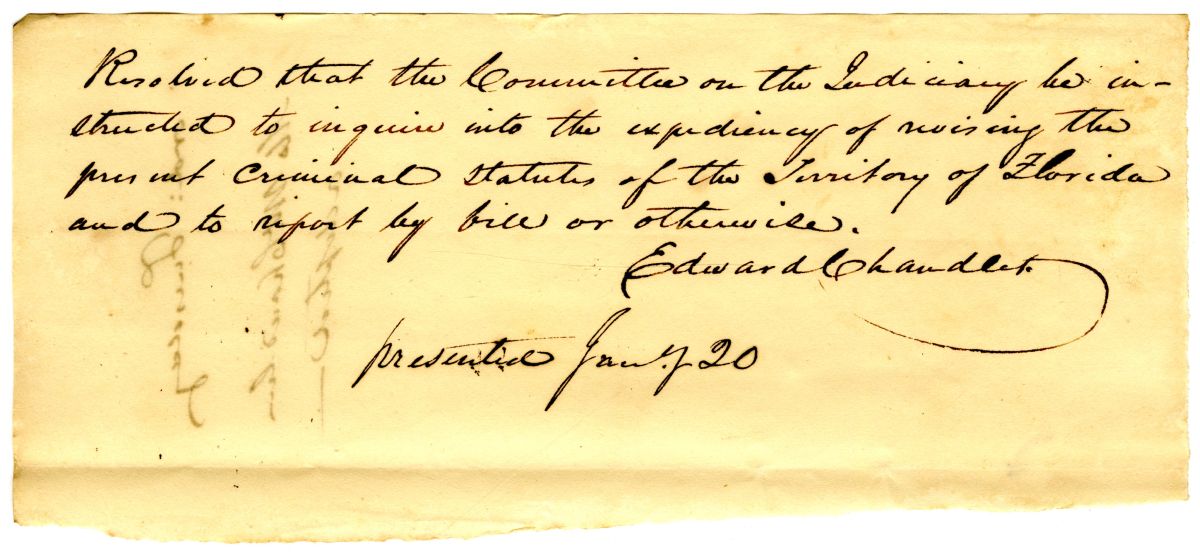 Resolved that the Committee on the Judiciary be in-
structed to inquire into the expediency of revising the
present criminal statutes of the Territory of Florida
and to report by bill or otherwise.
Edward Chandler
presented Jany 20